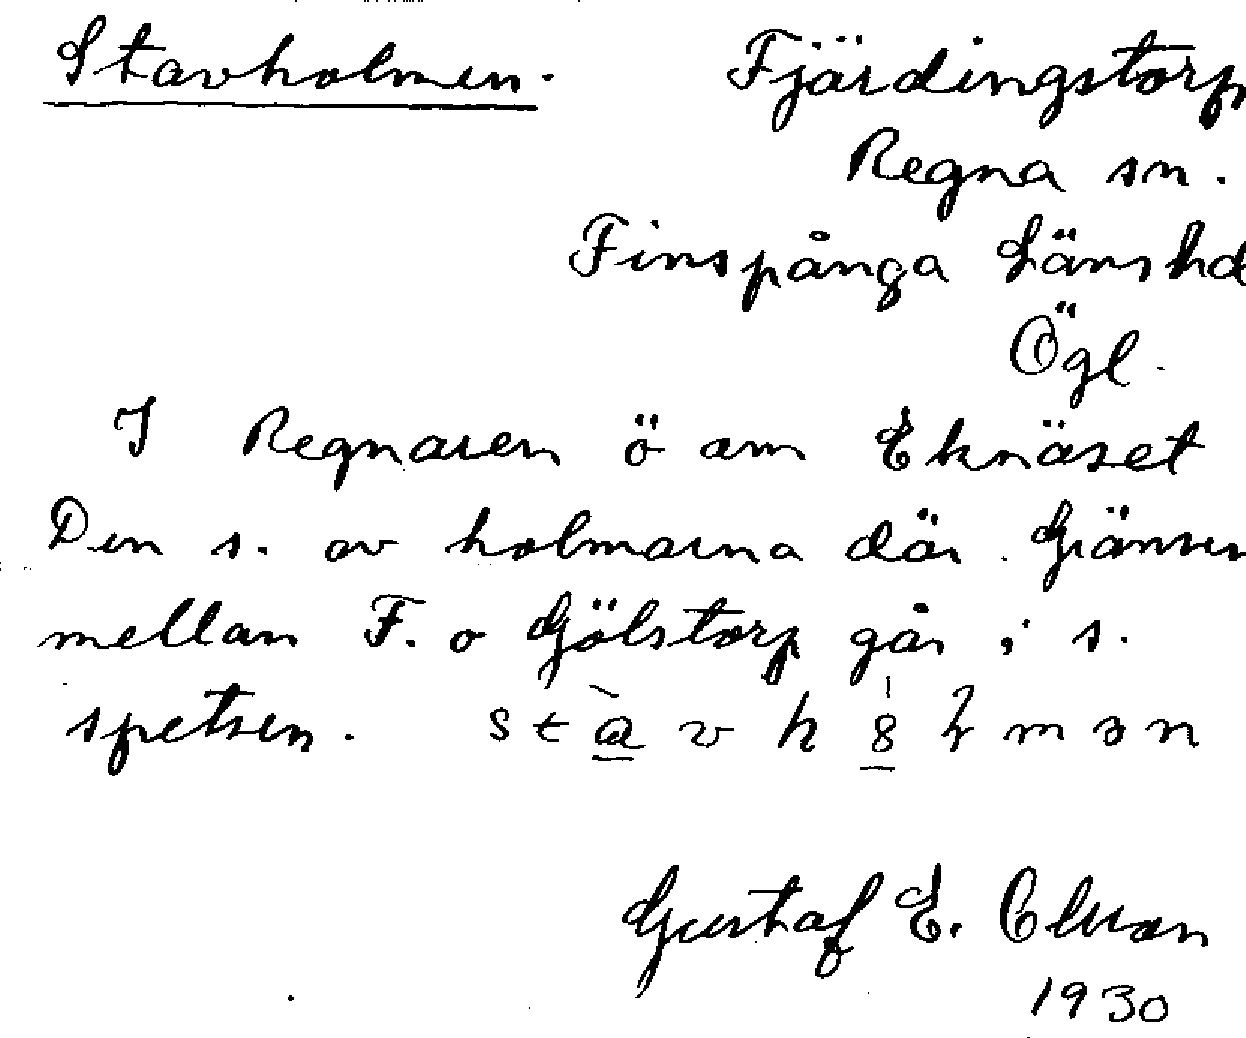 Stavholmen. Fjärdingstorp
Regna sn.
Finspånga Länshd
Ögl.
I Regnaren ö om Eknäset
Den s. av holmarna där Gränsen
mellan F. o Gölstorp går i s.
spetsen. st a v h 8 l m ə n
Gustaf E.
1930